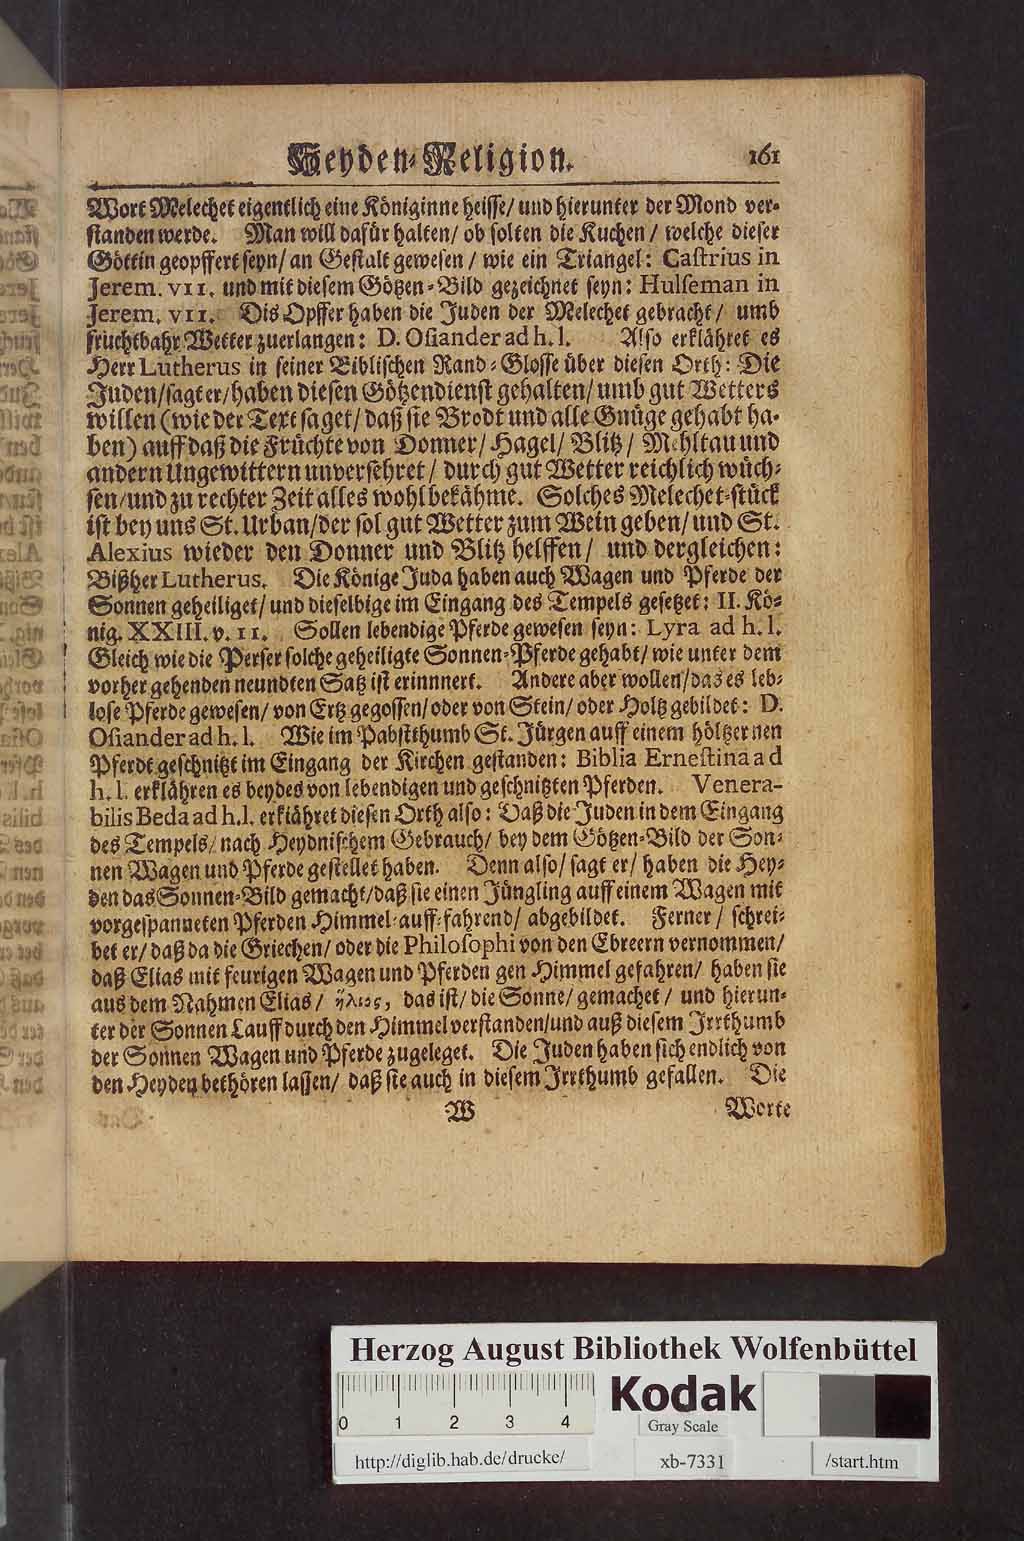 Heyden-Religion. 161
Wort Melechet eigentlich eine Königinne heisse/ und hierunter der Mond ver-
standen werde. Man will dafür halten/ ob solten die Kuchen/ welche dieser
Göttin geopffert seyn/ an Gestalt gewesen/ wie ein Triangel: Castrius in
Jerem. VII. und mit diesem Götzen-Bild gezeichnet seyn: Hulseman in
Jerem. VII. Dis Opffer haben die Juden der Melechet gebracht/ umb
fruchtbahr Wetter zuerlangen: D. Osiander ad h. l. Also erklähret es
Herr Lutherus in seiner Biblischen Rand-Glosse über diesen Orth: Die
Juden/ sagt er/ haben diesen Götzendienst gehalten/ umb gut Wetters
willen (wie der Text saget/ daß sie Brodt und alle Gnüge gehabt ha-
ben) auff daß die Früchte von Donner/ Hagel/ Blitz/ Mehltau und
andern Ungewittern unversehret/ durch gut Wetter reichlich wüch-
sen/ und zu rechter Zeit alles wohl bekähme. Solches Melechet-stück
ist bey uns St. Urban/ der sol gut Wetter zum Wein geben/ und St.
Alexius wieder den Donner und Blitz helffen/ und dergleichen:
Bißher Lutherus. Die Könige Juda haben auch Wagen und Pferde der
Sonnen geheiliget/ und dieselbige im Eingang des Tempels gesetzet: II. Kö-
nig. XXIII. v. 11. Sollen lebendige Pferde gewesen seyn: Lyra ad h. l.
Gleich wie die Perser solche geheiligte Sonnen-Pferde gehabt/ wie unter dem
vorher gehenden neundten Satz ist erinnnert. Andere aber wollen/ das es leb-
lose Pferde gewesen/ von Ertz gegossen/ oder von Stein/ oder Holtz gebildet: D.
Osiander ad h. l. Wie im Pabstthumb St. Jürgen auff einem höltzernen
Pferdt geschnitzt im Eingang der Kirchen gestanden: Biblia Ernestina ad
h. l. erklähren es beydes von lebendigen und geschnitzten Pferden. Venera-
bilis Beda ad h. l. erklähret diesen Orth also: Daß die Juden in dem Eingang
des Tempels/ nach Heydnischem Gebrauch/ bey dem Götzen-Bild der Son-
nen Wagen und Pferde gestellet haben. Denn also/ sagt er/ haben die Hey-
den das Sonnen-Bild gemacht/ daß sie einen Jüngling auff einem Wagen mit
vorgespanneten Pferden Himmel-auff-fahrend/ abgebildet. Ferner/ schrei-
bet er/ daß da die Griechen/ oder die Philosophi von den Ebreern vernommen/
daß Elias mit feurigen Wagen und Pferden gen Himmel gefahren/ haben sie
aus dem Nahmen Elias/ ἥλιος, das ist/ die Sonne/ gemachet/ und hierun-
ter der Sonnen Lauff durch den Himmel verstanden/ und auß diesem Irrthumb
der Sonnen Wagen und Pferde zugeleget. Die Juden haben sich endlich von
den Heyden bethören lassen/ daß sie auch in diesem Irrthumb gefallen. Die
W Worte
Herzog August Bibliothek Wolfenbüttel
0 1 2 3 4
Kodak
Gray Scale
http://diglib.hab.de/drucke/ xb-7331 /start.htm